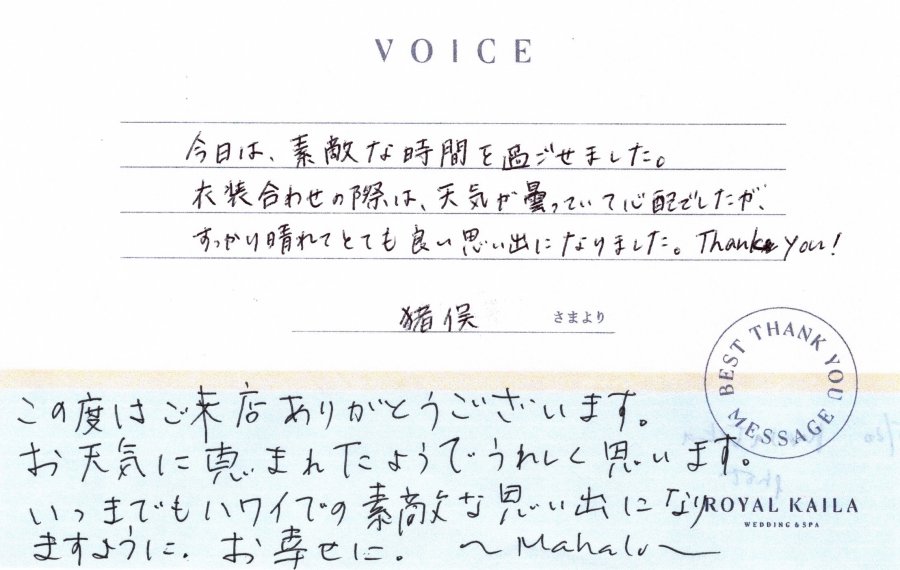 VOICE
今日は、素敵な時間を過ごせました。
衣装合わせの際は、天気が曇っていて心配でしたが、
すっかり晴れてとても良い思い出になりました。Thank you!
猪俣 さまより
BEST THANK YOU MESSAGE
この度はご来店ありがとうございます。
お天気に恵まれたようでうれしく思います。
いつまでもハワイでの素敵な思い出になり
ROYAL KAILA
WEDDING & SPA
ますように。お幸せに。 〜Mahalo〜